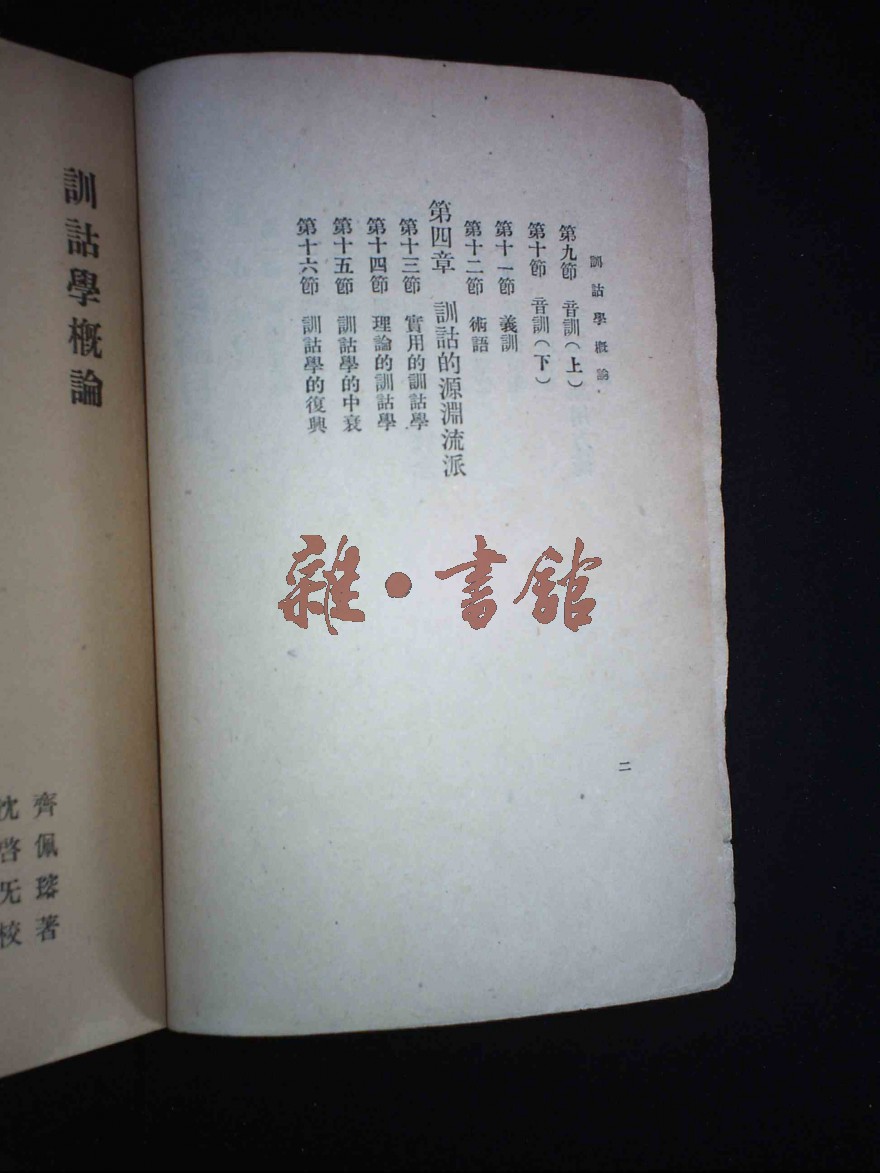 訓詁學概論
第九節　音訓（上）
第十節　音訓（下）
第十一節　義訓
第十二節　術語
第四章　訓詁的源淵流派
第十三節　實用的訓詁學
第十四節　理論的訓詁學
第十五節　訓詁學的中衰
第十六節　訓詁學的復興
二
雜·書館
訓詁學概論
齊佩瑢著
沈啓无校